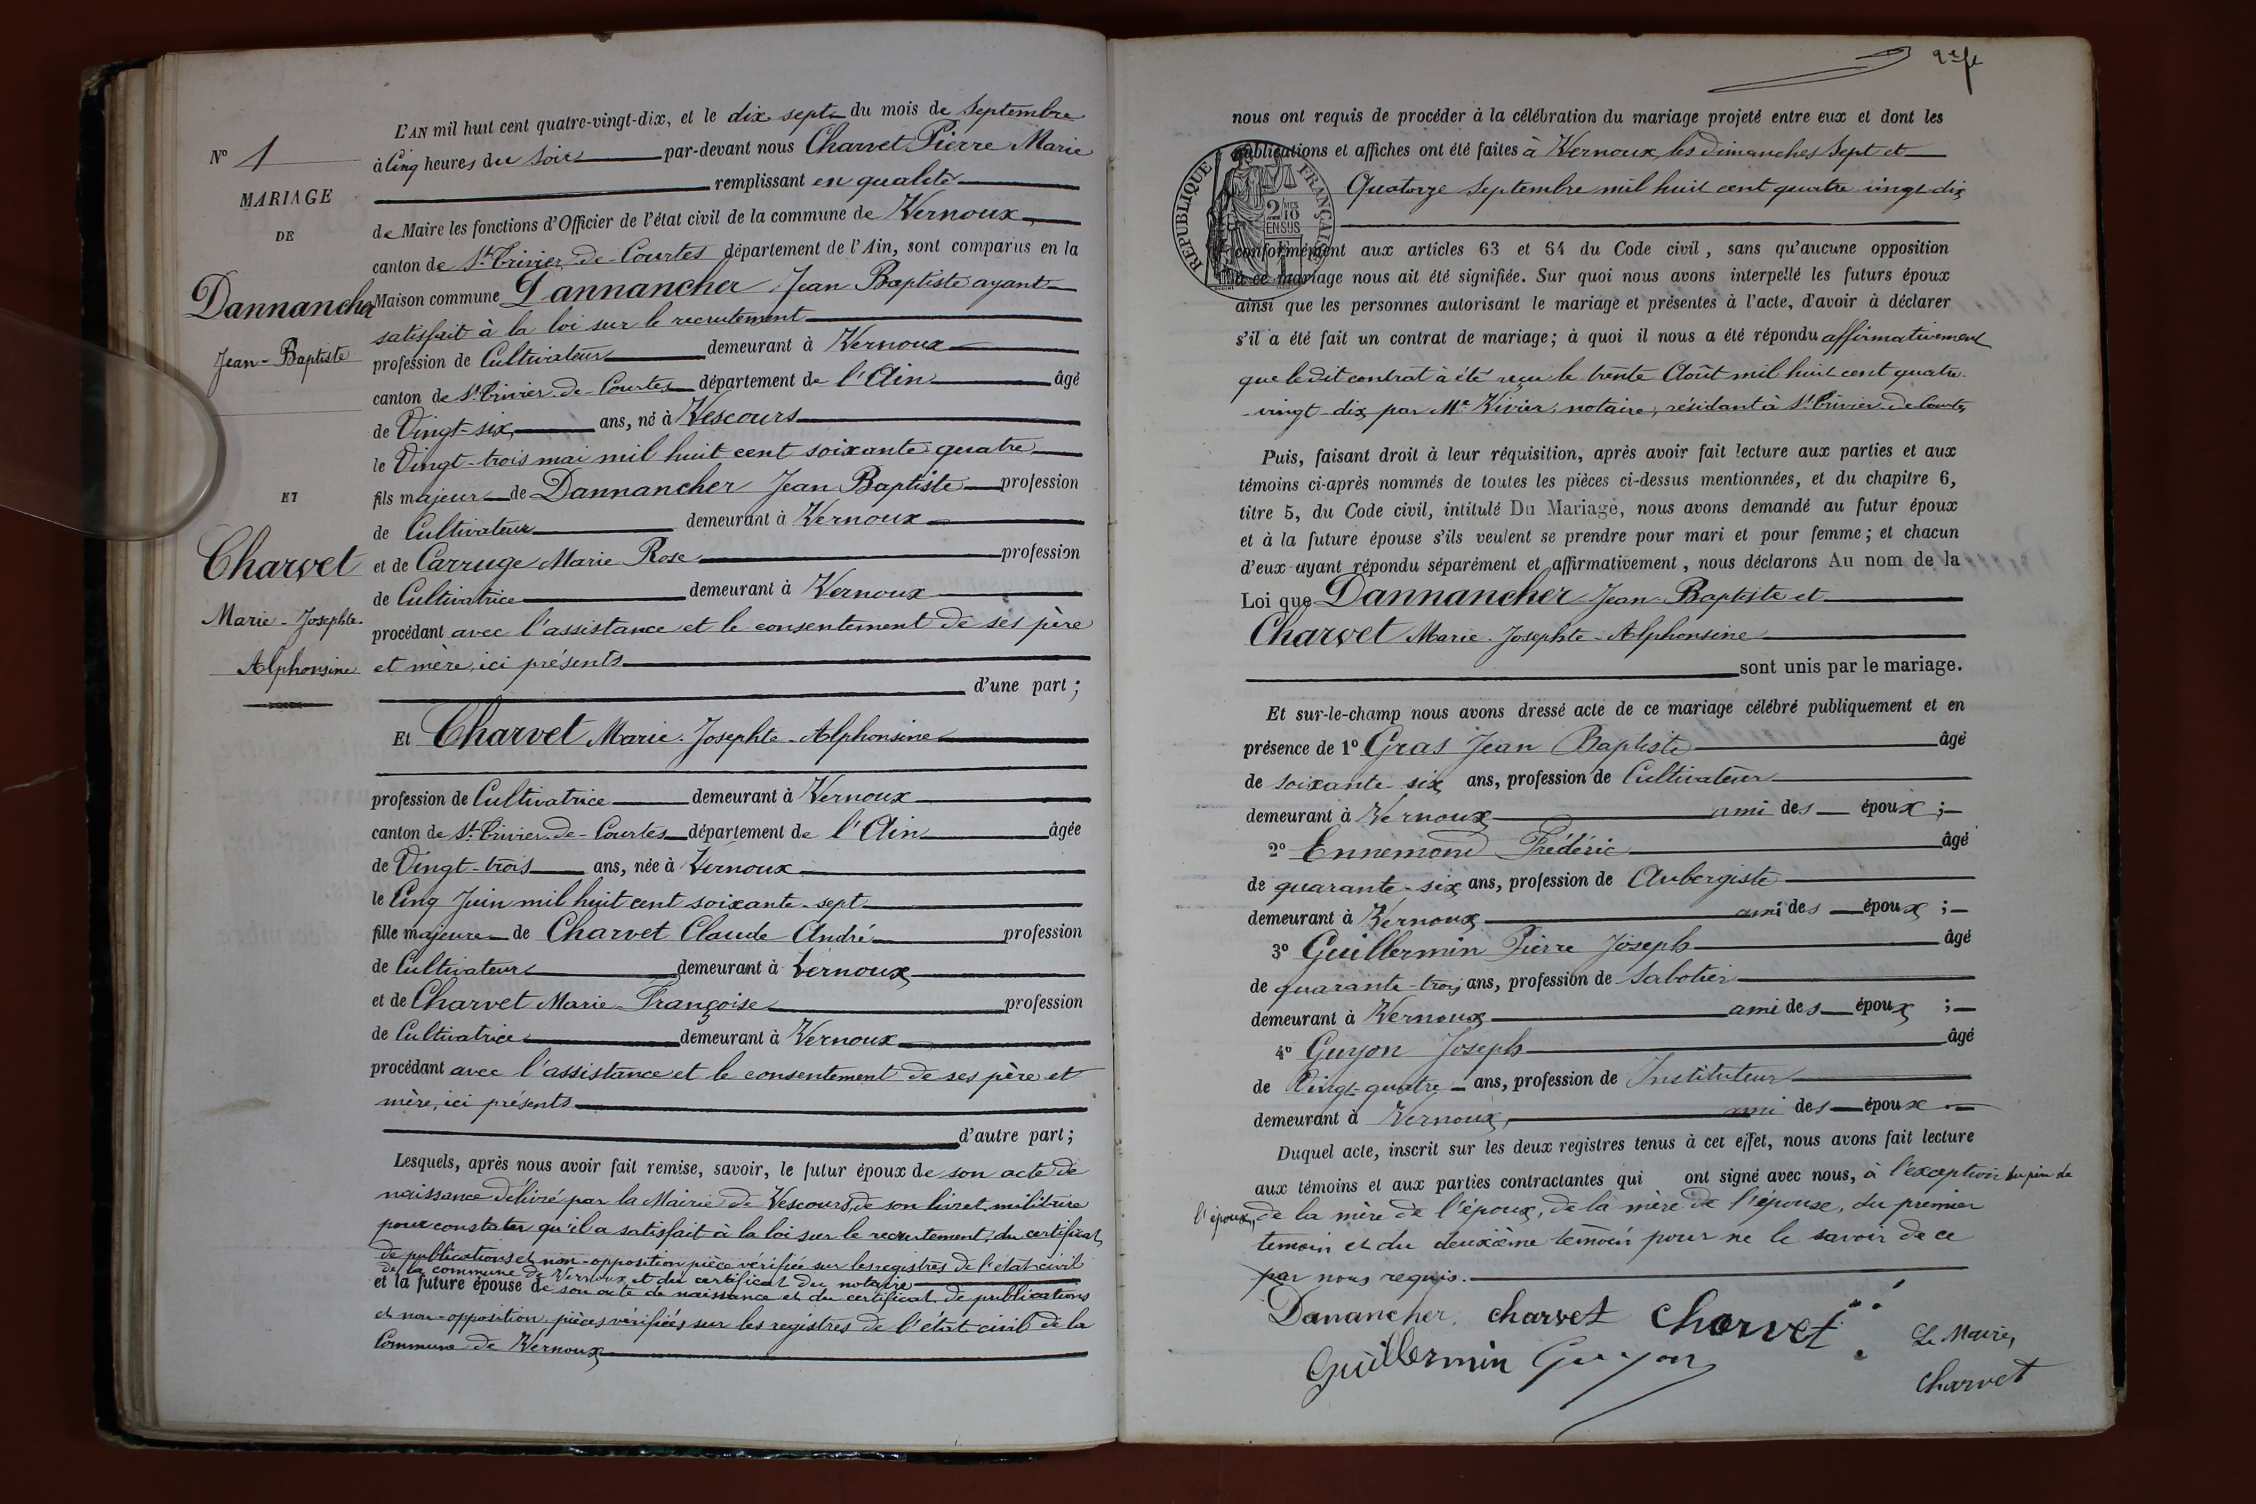 N° 1
MARIAGE
DE
Dannancher
Jean-Baptiste
ET
Charvet
Marie-Josephte-
Alphonsine
L'AN mil huit cent quatre-vingt-dix, et le dix sept du mois de Septembre
à Cinq heures du Soir par-devant nous Charvet Pierre Marie
remplissant en qualité
de Maire les fonctions d'Officier de l'état civil de la commune de Vernoux,
canton de St Trivier-de-Courtes département de l'Ain, sont comparus en la
Maison commune Dannancher, Jean Baptiste ayant
satisfait à la loi sur le recrutement
profession de Cultivateur demeurant à Vernoux
canton de St Trivier-de-Courtes département de l'Ain âgé
de Vingt-six ans, né à Vescours
le Vingt-trois mai mil huit cent soixante quatre
fils majeur de Dannancher Jean Baptiste profession
de Cultivateur demeurant à Vernoux
et de Carruge Marie Rose profession
de Cultivatrice demeurant à Vernoux
procédant avec l'assistance et le consentement de ses père
et mère, ici présents
d'une part ;
Et Charvet Marie-Josephte-Alphonsine
profession de Cultivatrice demeurant à Vernoux
canton de St Trivier-de-Courtes département de l'Ain âgée
de Vingt-trois ans, née à Vernoux
le Cinq Juin mil huit cent soixante-sept
fille majeure de Charvet Claude André profession
de Cultivateur demeurant à Vernoux
et de Charvet Marie-Françoise profession
de Cultivatrice demeurant à Vernoux
procédant avec l'assistance et le consentement de ses père et
mère, ici présents
d'autre part ;
Lesquels, après nous avoir fait remise, savoir, le futur époux de son acte de
naissance délivré par la Mairie de Vescours, de son livret militaire
pour constater qu'il a satisfait à la loi sur le recrutement, du certificat
de publications et non-opposition pièce vérifiée sur les registres de l'état civil
de la commune de Vernoux et du certificat du notaire
et la future épouse de son acte de naissance et du certificat de publications
et non-opposition pièces vérifiées sur les registres de l'état civil de la
Commune de Vernoux
nous ont requis de procéder à la célébration du mariage projeté entre eux et dont les
publications et affiches ont été faites à Vernoux, les dimanches Sept et
Quatorze Septembre mil huit cent quatre vingt dix
RÉPUBLIQUE FRANÇAISE
2/10
EN SUS
conformément aux articles 63 et 64 du Code civil, sans qu'aucune opposition
à ce mariage nous ait été signifiée. Sur quoi nous avons interpellé les futurs époux
ainsi que les personnes autorisant le mariage et présentes à l'acte, d'avoir à déclarer
s'il a été fait un contrat de mariage ; à quoi il nous a été répondu affirmativement
que le dit contrat à été reçu le trente Août mil huit cent quatre-
-vingt-dix, par Me Vivier, notaire, résidant à St Trivier-de-Courtes
Puis, faisant droit à leur réquisition, après avoir fait lecture aux parties et aux
témoins ci-après nommés de toutes les pièces ci-dessus mentionnées, et du chapitre 6,
titre 5, du Code civil, intitulé Du Mariage, nous avons demandé au futur époux
et à la future épouse s'ils veulent se prendre pour mari et pour femme ; et chacun
d'eux ayant répondu séparément et affirmativement, nous déclarons Au nom de la
Loi que Dannancher Jean-Baptiste et
Charvet Marie-Josephte-Alphonsine
sont unis par le mariage.
Et sur-le-champ nous avons dressé acte de ce mariage célébré publiquement et en
présence de 1° Gras Jean Baptiste âgé
de soixante six ans, profession de Cultivateur
demeurant à Vernoux ami des époux ;
2° Ennemond Frédéric âgé
de quarante-six ans, profession de Aubergiste
demeurant à Vernoux ami des époux ;
3° Guillermin Pierre Joseph âgé
de quarante-trois ans, profession de Sabotier
demeurant à Vernoux ami des époux ;
4° Guyon Joseph âgé
de Vingt-quatre ans, profession de Instituteur
demeurant à Vernoux, ami des époux
Duquel acte, inscrit sur les deux registres tenus à cet effet, nous avons fait lecture
aux témoins et aux parties contractantes qui ont signé avec nous, à l'exception du père de
l'époux, de la mère de l'époux, de la mère de l'épouse, du premier
témoin et du deuxième témoin pour ne le savoir de ce
par nous requis.
Danancher charvet Charvet
Guillermin Guyon
Le Maire,
Charvet